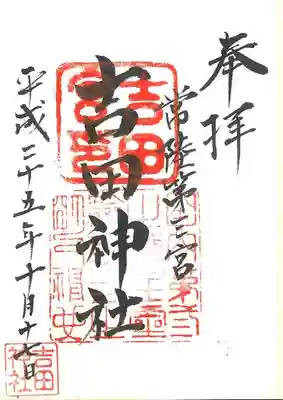 奉拝
常陸第三宮
吉田神社
平成二十五年十月十七日
吉田神社